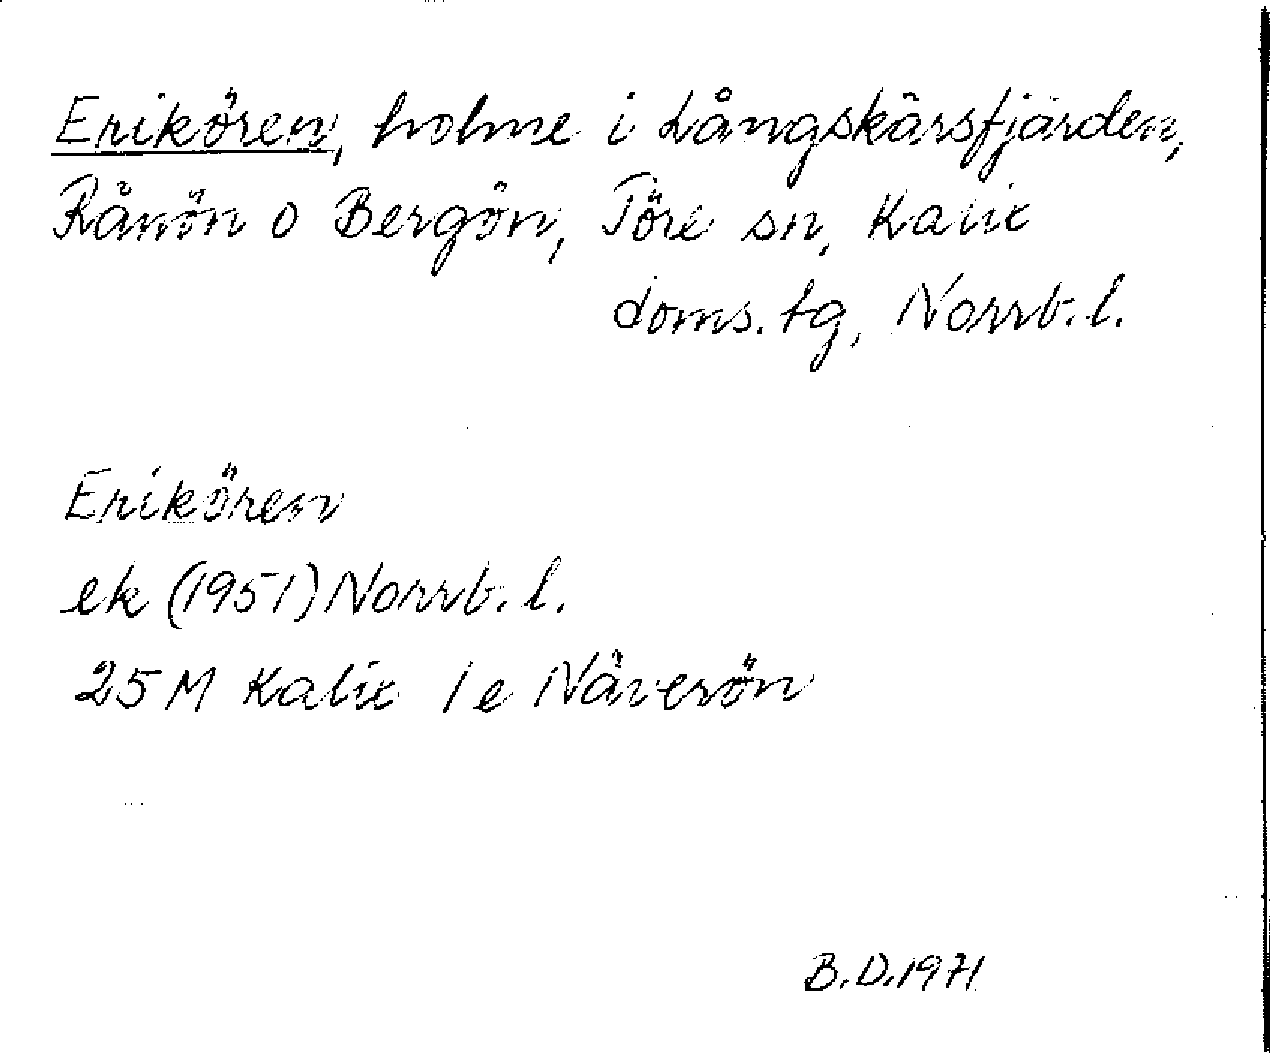 Erikören, holme i Långskärsfjärden,
Rånön o Bergön, Töre sn, Kalix
doms.tg, Norrb.l.
Erikören
ek (1951) Norrb.l.
25 M Kalix 1e Näverön
B.D.1971